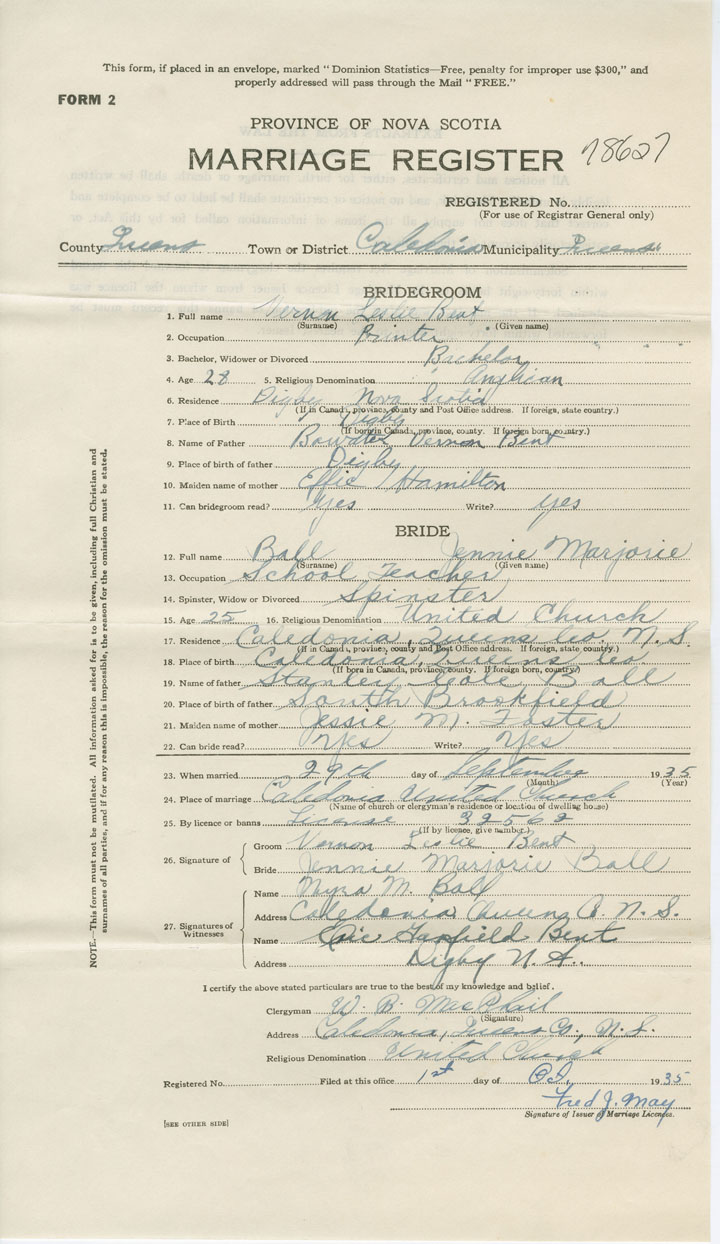 This form, if placed in an envelope, marked "Dominion Statistics—Free, penalty for improper use $300," and
properly addressed will pass through the Mail "FREE."
FORM 2
PROVINCE OF NOVA SCOTIA
MARRIAGE REGISTER 78627
REGISTERED No.
(For use of Registrar General only)
County Queens Town or District Caledonia Municipality Queens
BRIDEGROOM
1. Full name Vernon Leslie Bent
(Surname) (Given name)
2. Occupation Printer
3. Bachelor, Widower or Divorced Bachelor
4. Age 28 5. Religious Denomination Anglican
6. Residence Digby Nova Scotia
(If in Canada, province, county and Post Office address. If foreign, state country.)
7. Place of Birth Digby
(If born in Canada, province, county. If foreign born, country.)
8. Name of Father Vernon Bent
9. Place of birth of father Digby
10. Maiden name of mother Effie Hamilton
11. Can bridegroom read? Yes Write? yes
BRIDE
12. Full name Ball Jennie Marjorie
(Surname) (Given name)
13. Occupation School Teacher
14. Spinster, Widow or Divorced Spinster
15. Age 25 16. Religious Denomination United Church
17. Residence Caledonia, Queens Co. N.S.
(If in Canada, province, county and Post Office address. If foreign, state country.)
18. Place of birth Caledonia, Queens Co
(If born in Canada, province, county. If foreign born, country)
19. Name of father Stanley Ball
20. Place of birth of father South Brookfield
21. Maiden name of mother Jessie M. Foster
22. Can bride read? Yes Write? Yes
23. When married 29th day of September 1935
(Month) (Year)
24. Place of marriage Caledonia United Church
(Name of church or clergyman's residence or location of dwelling house)
25. By licence or banns License 32562
(If by licence, give number.)
26. Signature of
Groom Vernon Leslie Bent
Bride Jennie Marjorie Ball
27. Signatures of Witnesses
Name Myra M. Ball
Address Caledonia Queens Co N.S.
Name Garfield Bent
Address Digby N.S.
I certify the above stated particulars are true to the best of my knowledge and belief.
Clergyman W. B. MacPhail
(Signature)
Address Caledonia, Queens Co., N.S.
Religious Denomination United Church
Registered No. Filed at this office 1st day of Oct. 1935
Fred J. May
Signature of Issuer of Marriage Licences.
[SEE OTHER SIDE]
NOTE.—This form must not be mutilated. All information asked for is to be given, including full Christian and
surnames of all parties, and if for any reason this is impossible, the reason for the omission must be stated.